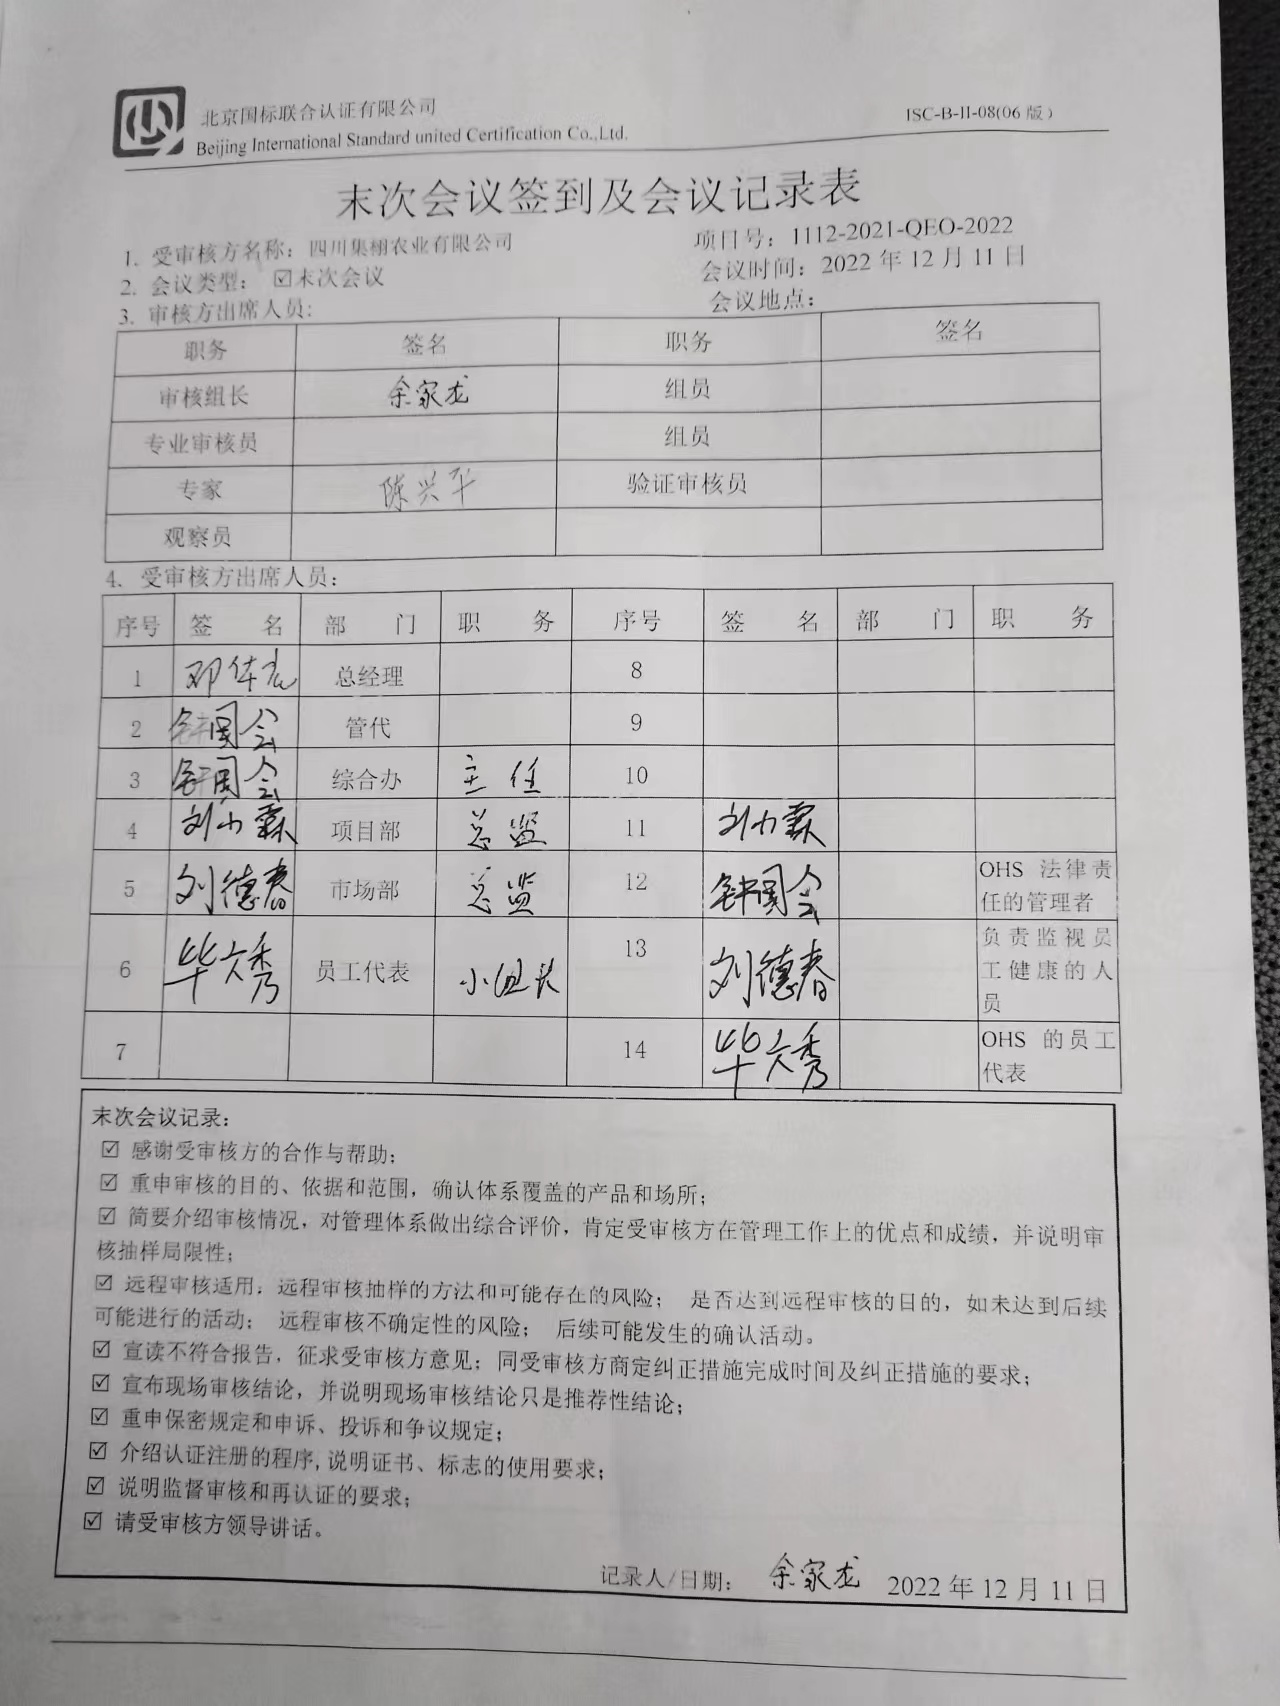 北京国标联合认证有限公司
Beijing International Standard united Certification Co.,Ltd.
ISC-B-II-08(06 版)
末次会议签到及会议记录表
1. 受审核方名称: 四川集栩农业有限公司
项目号: 1112-2021-QEO-2022
2. 会议类型: ☑末次会议
会议时间: 2022 年 12 月 11 日
3. 审核方出席人员:
会议地点:
职务 签名 职务 签名
审核组长 余家龙 组员
专业审核员 组员
专家 陈兴华 验证审核员
观察员
4. 受审核方出席人员:
序号 签 名 部 门 职 务 序号 签 名 部 门 职 务
1 总经理 8
2 钟国会 管代 9
3 钟国会 综合办 主任 10
4 刘小霖 项目部 总监 11 刘小霖
5 刘德春 市场部 总监 12 钟国会 OHS 法律责
任的管理者
6 毕六秀 员工代表 小组长 13 刘德春 负责监视员
工健康的人
员
7 14 毕六秀 OHS 的员工
代表
末次会议记录:
☑ 感谢受审核方的合作与帮助;
☑ 重申审核的目的、依据和范围, 确认体系覆盖的产品和场所;
☑ 简要介绍审核情况, 对管理体系做出综合评价, 肯定受审核方在管理工作上的优点和成绩, 并说明审
核抽样局限性;
☑ 远程审核适用: 远程审核抽样的方法和可能存在的风险; 是否达到远程审核的目的, 如未达到后续
可能进行的活动; 远程审核不确定性的风险; 后续可能发生的确认活动。
☑ 宣读不符合报告, 征求受审核方意见; 同受审核方商定纠正措施完成时间及纠正措施的要求;
☑ 宣布现场审核结论, 并说明现场审核结论只是推荐性结论;
☑ 重申保密规定和申诉、投诉和争议规定;
☑ 介绍认证注册的程序, 说明证书、标志的使用要求;
☑ 说明监督审核和再认证的要求;
☑ 请受审核方领导讲话。
记录人/日期: 余家龙 2022 年 12 月 11 日